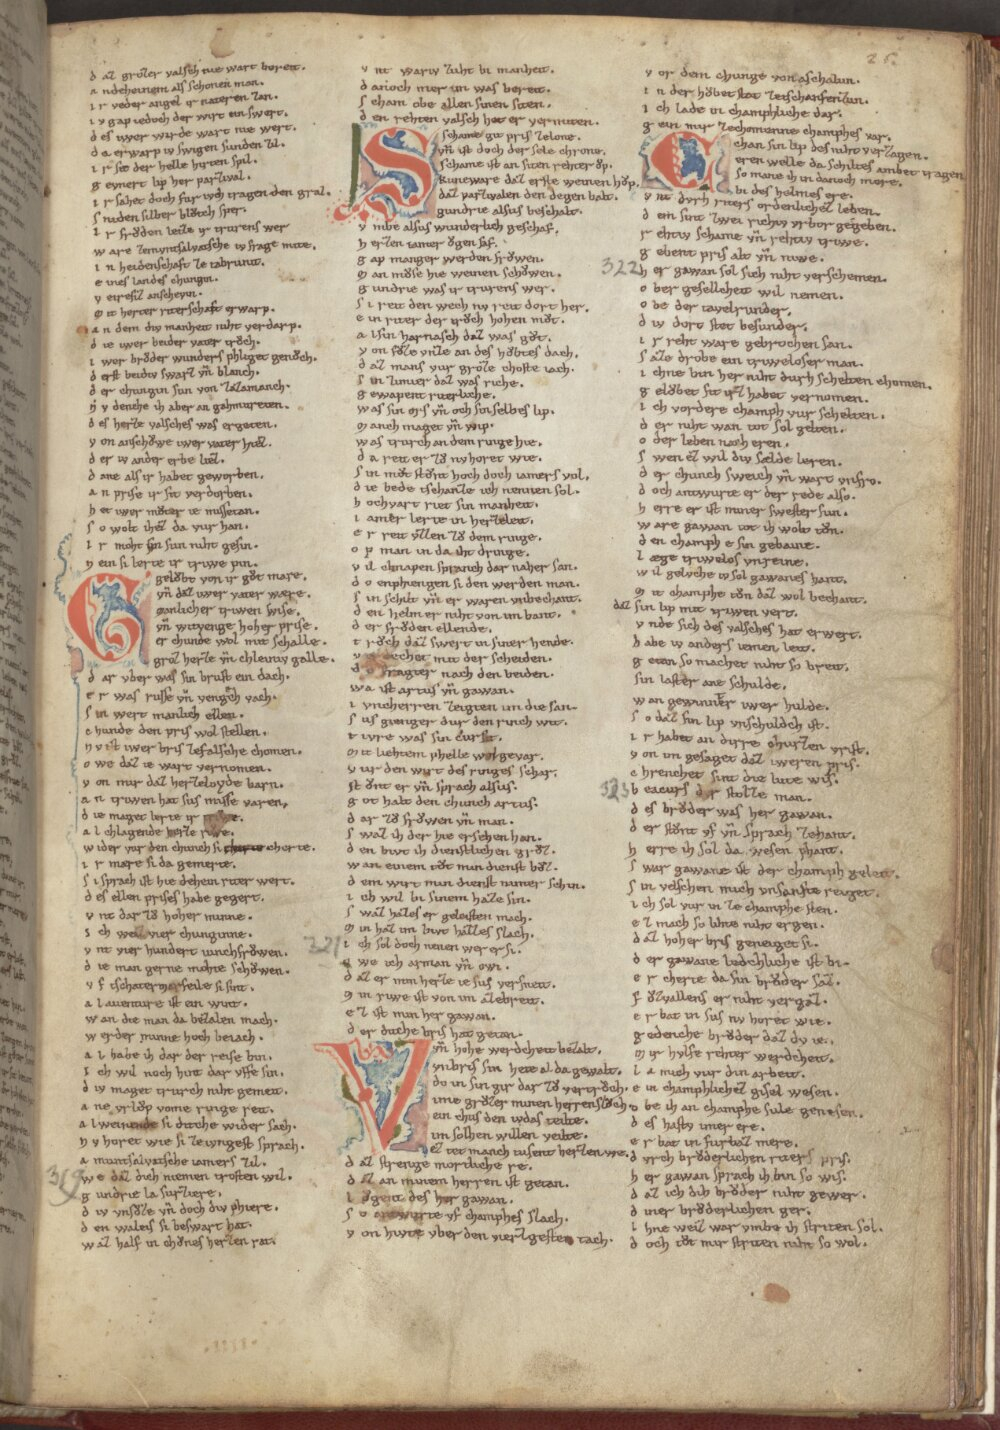 25.
d az grozer valsch nie wart bereit.
a ndeheinem als schonen man.
i r veder angel ir nateren zan.
i v gap iedoch der wirt ein swert.
d es iwer wirde wart nie wert.
d a erwarp iv swigen sunden zil.
i r sit der helle hirten spil.
g eunert lip her parzival.
i r sahet doch fur iuch tragen den gral.
s niden silber blůtch sper.
i r frǒden leite ir trurens wer
w are ze muntsalvatsche iv frage mite.
i n heidenschaft ze tabrunit.
e ines landes chungin.
v eirefiz anschevin.
m it herter riterschaft erwarp.
a n dem div manheit niht verdarp.
d ie iwer beider vater trǒch.
i wer brůder wunders phliget genůch.
d erst beidiv swarz vn̄ blanch.
d er chungin sun von zazamanch.
n v denche ih aber an gahmureten.
d es herze valsches was ergeten.
v on anschǒwe iwer vater hiez.
d er iv ander erbe liez.
d ane als ir habet geworben.
a n prise ir sit verdorben.
h et iwer můter ie missetan.
s o wolt ihez da vur han.
i r moht sin sun niht gesin.
n ein si lerte ir triwe pin.
G gelǒbt von ir gůt mare.
vn̄ daz iwer vater ware.
manlicher triwen wise.
vn̄ witvenge hoher prise.
er chunde wol mit schalle.
groz herze vn̄ chleiniv galle.
d ar vber was sin brust ein dach.
e r was russe vn̄ vengech vach.
s in wert manlich ellen.
c hunde den pris wol stellen.
n v ist iwer bris ze falsche chomen.
o we daz ie wart vernomen.
v on mir daz herzeloyde barn.
a n triwen hat sus misse varen,
d ie maget lerte ir triwe.
a l chlagende herze riwe.
w ider vur den chunch si cherte.
i r mare si da gemerte.
s i sprach ist hie dehein riter wert.
d es ellen prises habe gegert.
v nt dar zǒ hoher minne.
i ch weiz vier chunginne.
v nt vier hundert iunchfrǒwen.
d ie man gerne mohte schǒwen.
v f tschatermarfeile si sint.
a l aventure ist ein wint.
w an die man da bezalen mach.
w erder minne hoch beiach.
a l habe ih dar der reise bin.
i ch wil noch hint dar vffe sin.
d iv maget trurch niht gemeit.
a ne vrlǒp vome ringe reit.
a l weinende si diche wider sach.
n v horet wie si ze iungest sprach.
a muntsalvatsche iamers zil.
319
w e daz dich niemen trosten wil.
g undrie la surziere.
d iv vnsǒze vn̄ doch div phiere.
d en waleis si beswart hat.
w az half in chǒnes herzen rat.
v nt wariv zuht bi manheit.
d anoch mer im was bereit.
s cham obe allen sinen siten.
d en rehten valsch het er vermiten.
S schame git pris zelone.
vn̄ ist doch der sele chrone.
schame ist an siten rehter ǒp.
kuneware daz erste weinen hǒp.
daz parzivalen den degen balt.
gundrie alsus beschalt.
v mbe alsus wunderlich geschaf.
h erzen iamer ǒgen saf.
g ap manger werden frǒwen.
m an můse hie weinen schǒwen.
g undrie was ir trurens wer.
s i reit den wech nv reit dort her.
e in riter der trǒch hohen můt.
a l sin harnasch daz was gůt.
v on fůze vnze an des hǒbtes dach.
d az mans vur groze choste iach.
s in zimier daz was riche.
g ewapent riterliche.
w as sin ors vn̄ och sin selbes lip.
m anch maget vn̄ wip.
w as trurch an dem ringe hie.
d a reit er zǒ nv horet wie.
s in můt stůnt hoch doch iamers vol.
d ie bede tschanze ich nennen sol.
h ochvart riet sin manheit.
i amer lerte in herzeleit.
e r reit vzzen zǒ dem ringe.
o p man in da iht dringe.
v il chnapen spranch dar naher san.
d o enphiengen si den werden man.
s in schilt vn̄ er waren vnbechant.
d en helm er niht von im bant.
d er frǒden ellende.
t rǒch daz swert in siner hende.
v erdechet mit der scheiden.
d o fragter nach den beiden.
w a ist artus vn̄ gawan.
i vncherren zeigten im die san.
s us gienger dur den rinch wit.
t ivre was sin cursit.
m it liehtem phelle wol gevar.
v ur den wirt des ringes schar.
s tǒnt er vn̄ sprach alsus.
g ot halt den chunch artus.
d ar zǒ frǒwen vn̄ man.
s waz ih der hie ersehen han.
d en biut ih dienstlichen grůz.
w an einem tǒt min dienst bůz.
d em wirt min dienst nimer schin.
i ch wil bi sinem haze sin.
s waz hazes er geleisten mach.
m in haz im biut hazzes slach.
321
i ch sol doch nenen wer er si.
a we ich arman vn̄ owi.
d az er min herze ie sus versneit.
m in riwe ist von im ze breit.
e z ist her gawan.
d er diche bris hat getan.
V vn̄ hohe werdcheit bezalt.
vnbris sin hete al da gewalt.
do in sin gir dar zǒ vertrǒch.
ime grůzer minen herren slǒch.
ein chus den iudas teilte.
im solhen willen veilte.
ez tet manch tusent herzen we.
d az strenge mortliche re.
d az an minem herren ist getan.
l ǒgent des her gawan.
s o antwurte vf champhes slach.
v on hivte vber den vierzgesten tach.
v or dem chunge von aschalun.
i n der hǒbetstat zetschanfenzun.
i ch lade in champhliche dar.
g ein mir ze chomenne champhes var.
C chan sin lip des niht verzagen.
eren welle da schiltes ambet tragen
so mane ih in danoch more.
bi des helmes ere.
v nt dvrh riters ordenlichez leben.
d em sint zwei richiv vrbor gegeben.
r ehtiv schame vn̄ rehtiv triwe.
g ebent pris alt vn̄ niwe.
322
h er gawan sol sich niht verschemen.
o ber geselleheit wil nemen.
o be der tavelrunder.
d iv dort stet besunder.
i r reht ware gebrochen san.
s aze drobe ein triweloser man.
i chne bin her niht durh schelten chomen.
g elǒbet sit irz habet vernomen.
i ch vordere champh vur schelten.
d er niht wan tot sol gelten.
o der leben nach eren.
s wen ez wil div sælde leren.
d er chunch sweich vn̄ wart vnfro.
d och antwurte er der rede also.
h erre er ist miner swester sun.
w are gawan tot ih wolt tůn.
d en champh e sin gebaine.
l æge triwelos vnreine.
w il gelvche iv sol gawanes hant.
m it champhe tůn daz wol bechant.
daz sin lip mit triwen vert.
v nde sich des valsches hat erwert.
h abe iv anders iemen leit.
g etan so machet niht so breit.
sin laster ane schulde.
w an gewinner iwer hulde.
s o daz sin lip vnschuldch ist.
i r habet an dirre churzen vrist.
v on im gesaget daz iweren pris.
c hrenchet sint die lute wis.
323
b eacurs der stolze man.
d es brůder was her gawan.
d er stůnt vf vn̄ sprach zehant.
h erre ih sol da wesen phant.
s war gawane ist der champh gelegt.
s in velschen mich vnsanfte reget.
i ch sol vur in ze champhe sten.
e z mach so lihte niht ergen.
d az hoher bris geneiget si.
d er gawane ledchliche ist bi.
e r cherte da sin brůder saz.
f ůzvallens er niht vergaz.
e r bat in sus nv horet wie.
g edenche brůder daz dv ie.
m ir hvlfe rehter werdcheit.
l a mich vur din arbeit.
e in champhlichez gisel wesen.
o be ih an champhe sule genesen.
d es hastv imer ere.
e r bat in furbaz mere.
d vrch brůderlichen riters pris.
h er gawan sprach ih bin so wis.
d az ich dih brůder niht gewer.
d iner brůderlichen ger.
i hne weiz war vmbe ih striten sol.
d och tůt mir striten niht so wol.
.IIII.